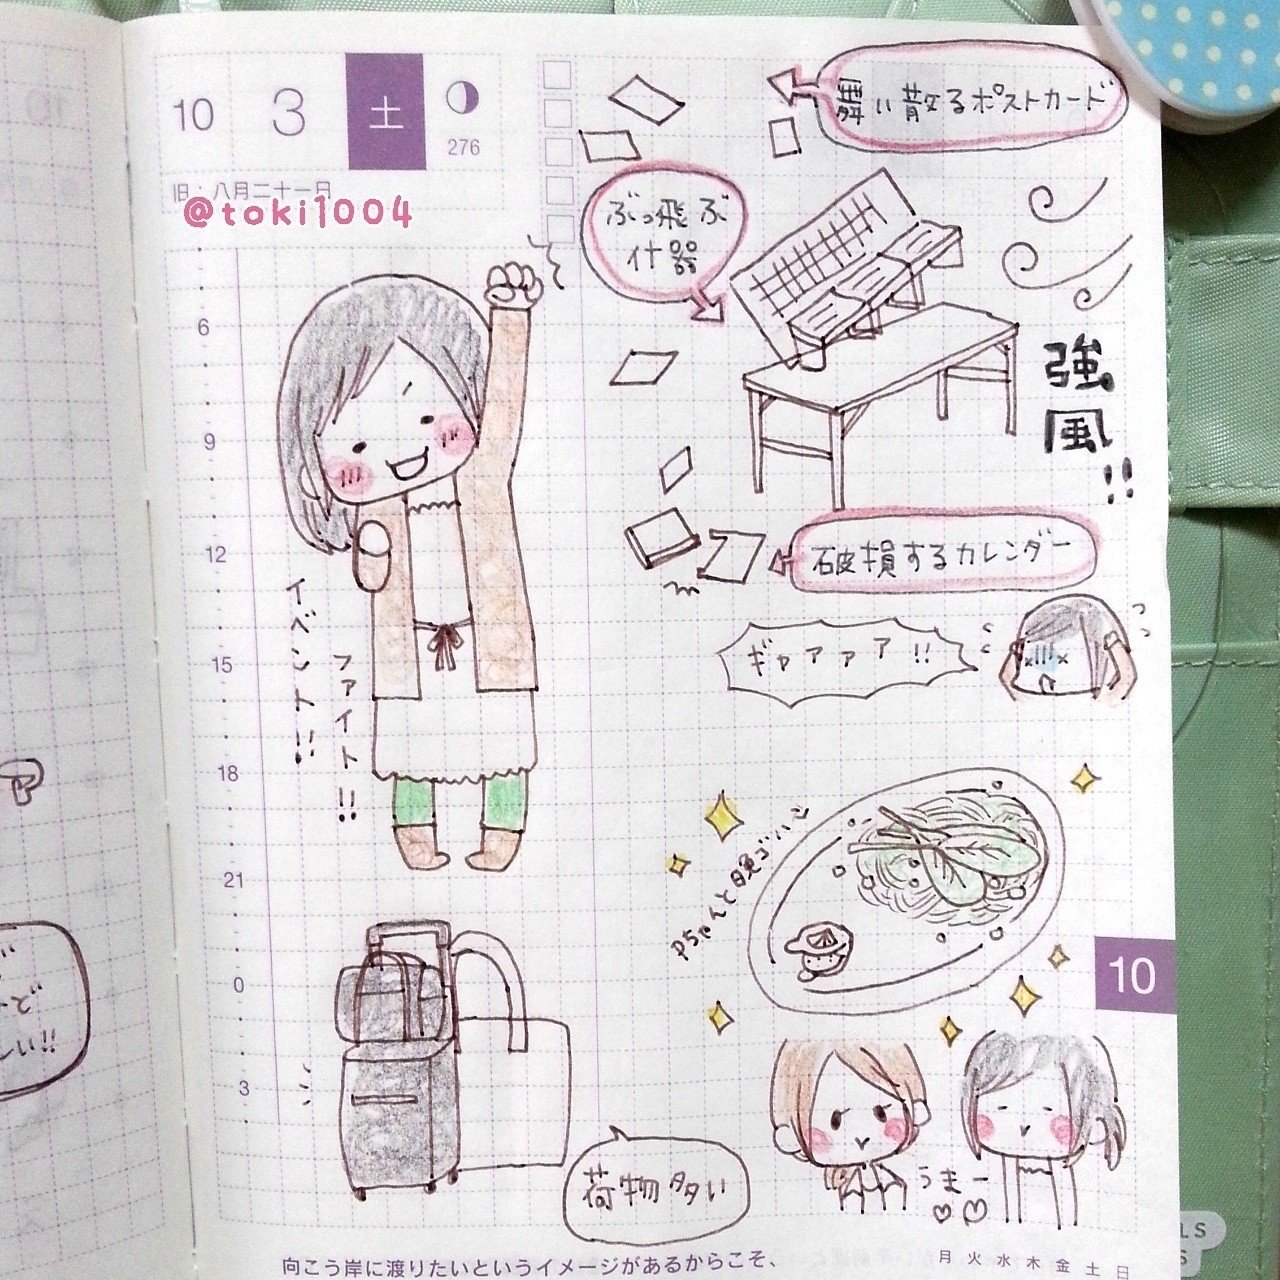 10 3 土
276
旧・八月二十一日
@toki1004
舞い散るポストカード
ぶっ飛ぶ
什器
強風!!
6
9
12
15
18
21
0
3
イベント!!
ファイト!!
破損するカレンダー
ギャァァァ!!
Pちゃんと晩ゴハン
10
うまー
荷物多い
向こう岸に渡りたいというイメージがあるからこそ、
月 火 水 木 金 土 日
LS
S